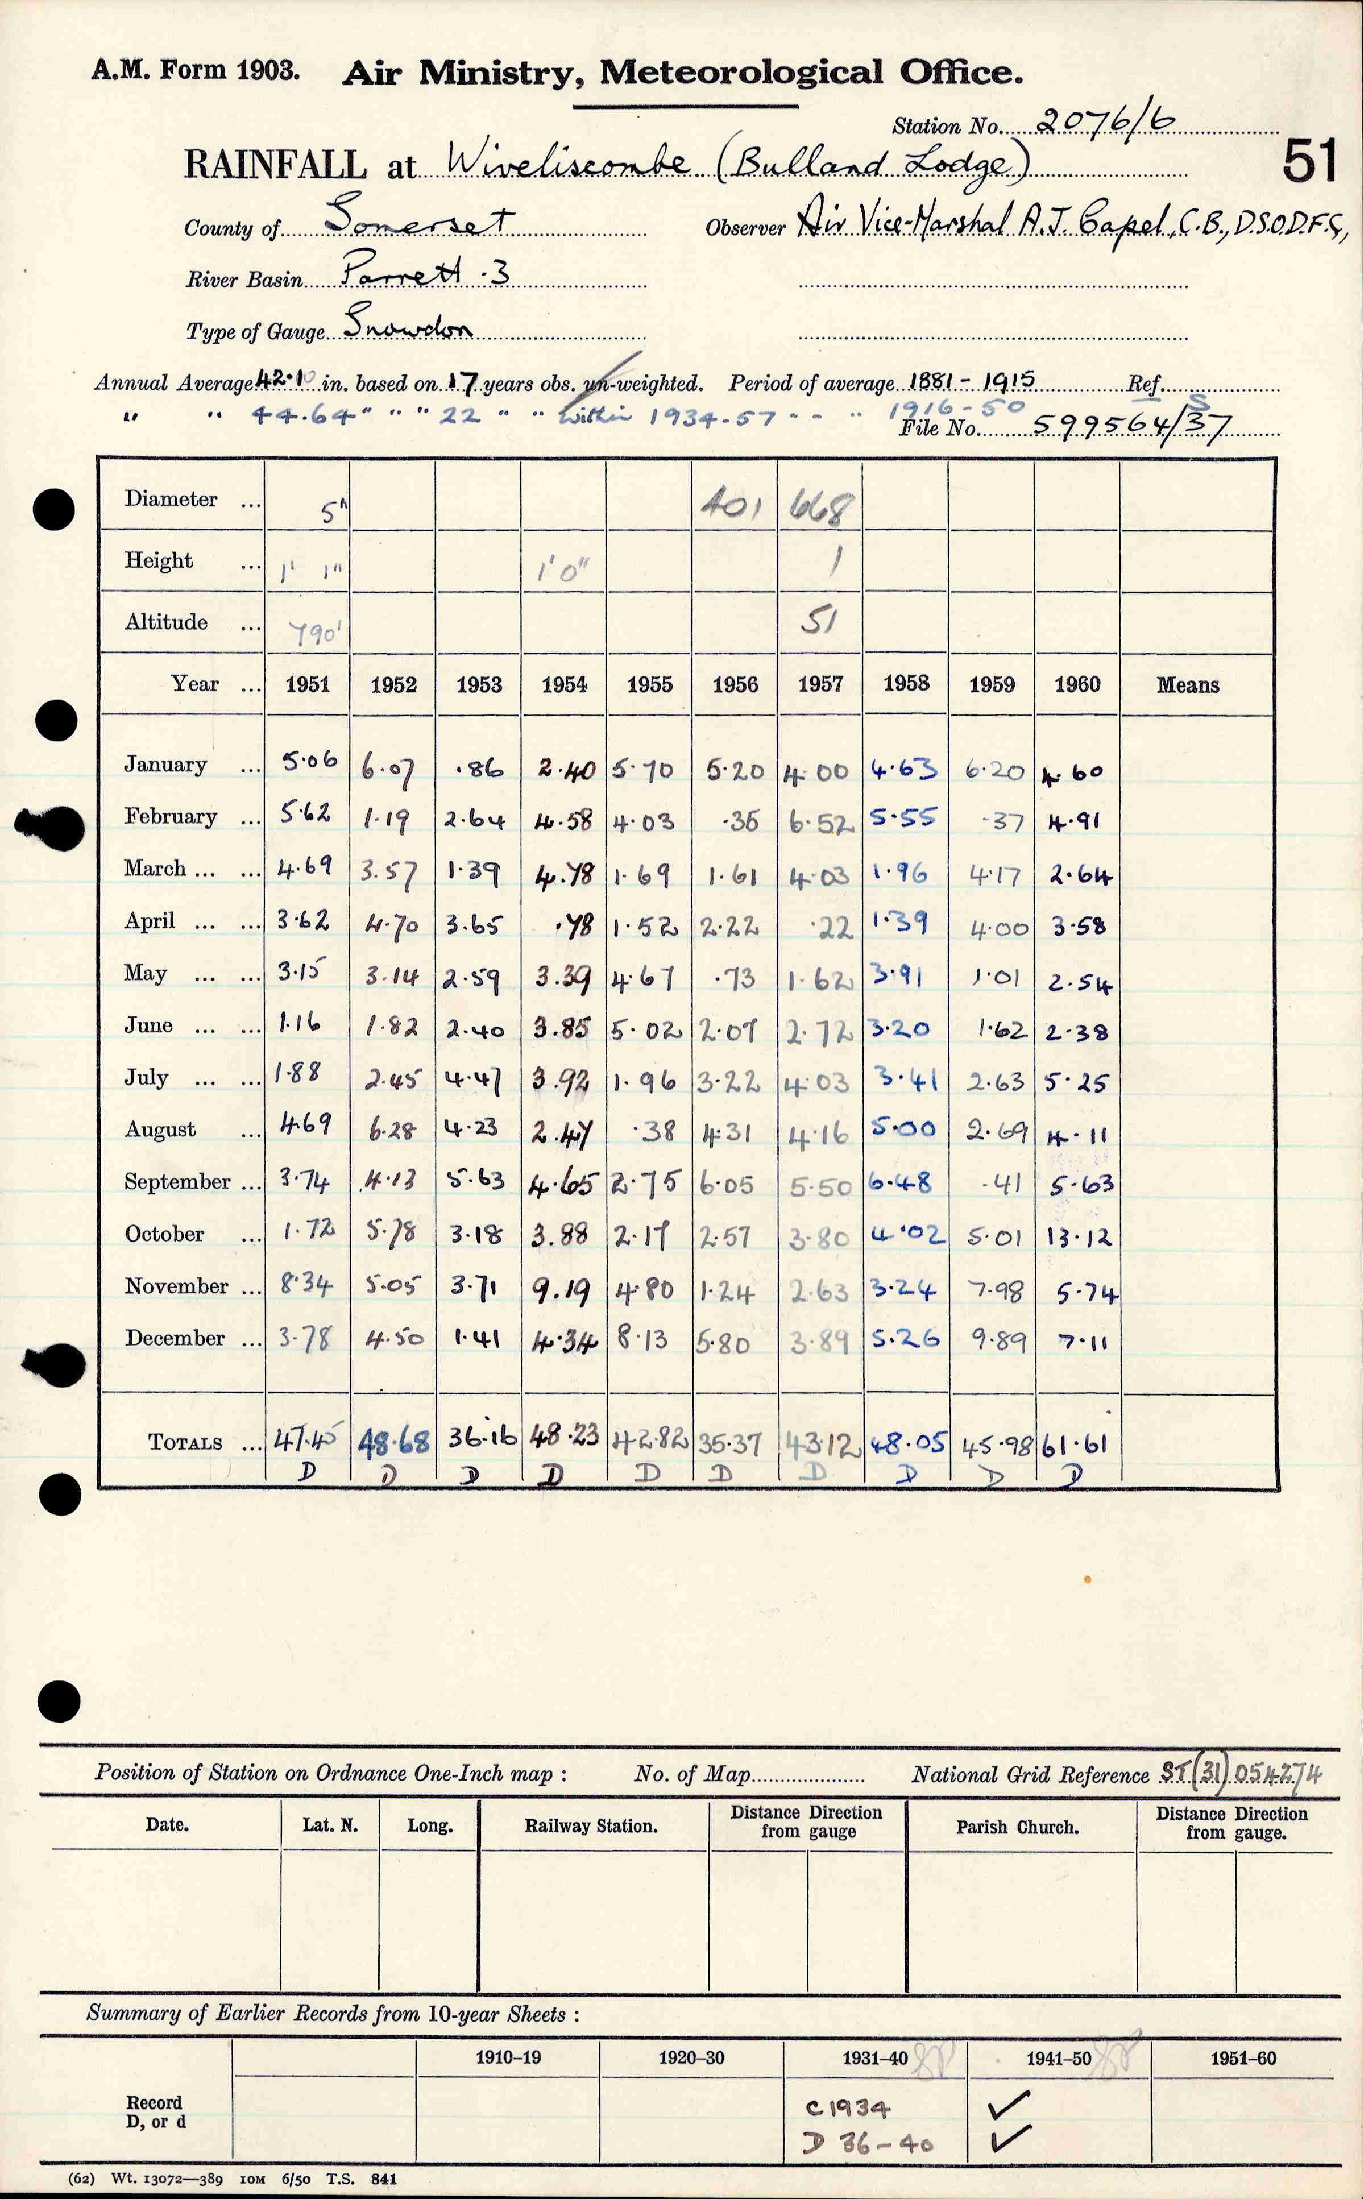 A.M. Form 1903. Air Ministry, Meteorological Office.
Station No. 2076/6
RAINFALL at Wiveliscombe (Bulland Lodge)
51
County of Somerset Observer Air Vice-Marshal A.J. Capel, C.B., D.S.O. D.F.C,
River Basin Parrett .3
Type of Gauge Snowdon
Annual Average 42.10 in. based on 17 years obs. un-weighted. Period of average 1881 - 1915 Ref. S
" " 44.64 " " " 22 " " within 1934-57 - - " 1916-50
File No. 599564/37
Diameter ... 5" 401 668
Height ... 1' 1" 1'0" 1
Altitude ... 790' 51
Year ... 1951 1952 1953 1954 1955 1956 1957 1958 1959 1960 Means
January ... 5.06 6.07 .86 2.40 5.70 5.20 4.00 4.63 6.20 4.60
February ... 5.62 1.19 2.64 4.58 4.03 .35 6.52 5.55 .37 4.91
March ... ... 4.69 3.57 1.39 4.78 1.69 1.61 4.03 1.96 4.17 2.64
April ... ... 3.62 4.70 3.65 .78 1.52 2.22 .22 1.39 4.00 3.58
May ... ... 3.15 3.14 2.59 3.39 4.67 .73 1.62 3.91 1.01 2.54
June ... ... 1.16 1.82 2.40 3.85 5.02 2.07 2.72 3.20 1.62 2.38
July ... ... 1.88 2.45 4.47 3.92 1.96 3.22 4.03 3.41 2.63 5.25
August ... 4.69 6.28 4.23 2.47 .38 4.31 4.16 5.00 2.69 4.11
September ... 3.74 4.13 5.63 4.65 2.75 6.05 5.50 6.48 .41 5.63
October ... 1.72 5.78 3.18 3.88 2.17 2.57 3.80 4.02 5.01 13.12
November ... 8.34 5.05 3.71 9.19 4.80 1.24 2.63 3.24 7.98 5.74
December ... 3.78 4.50 1.41 4.34 8.13 5.80 3.89 5.26 9.89 7.11
TOTALS ... 47.45 48.68 36.16 48.23 42.82 35.37 43.12 48.05 45.98 61.61
D D D D D D D D D D
Position of Station on Ordnance One-Inch map : No. of Map National Grid Reference ST(31) 054274
Date. Lat. N. Long. Railway Station. Distance Direction from gauge Parish Church. Distance Direction from gauge.
Summary of Earlier Records from 10-year Sheets :
1910–19 1920–30 1931–40 1941–50 1951–60
Record C 1934 ✓
D, or d D 36-40 ✓
(62) Wt. 13072—389 10M 6/50 T.S. 841